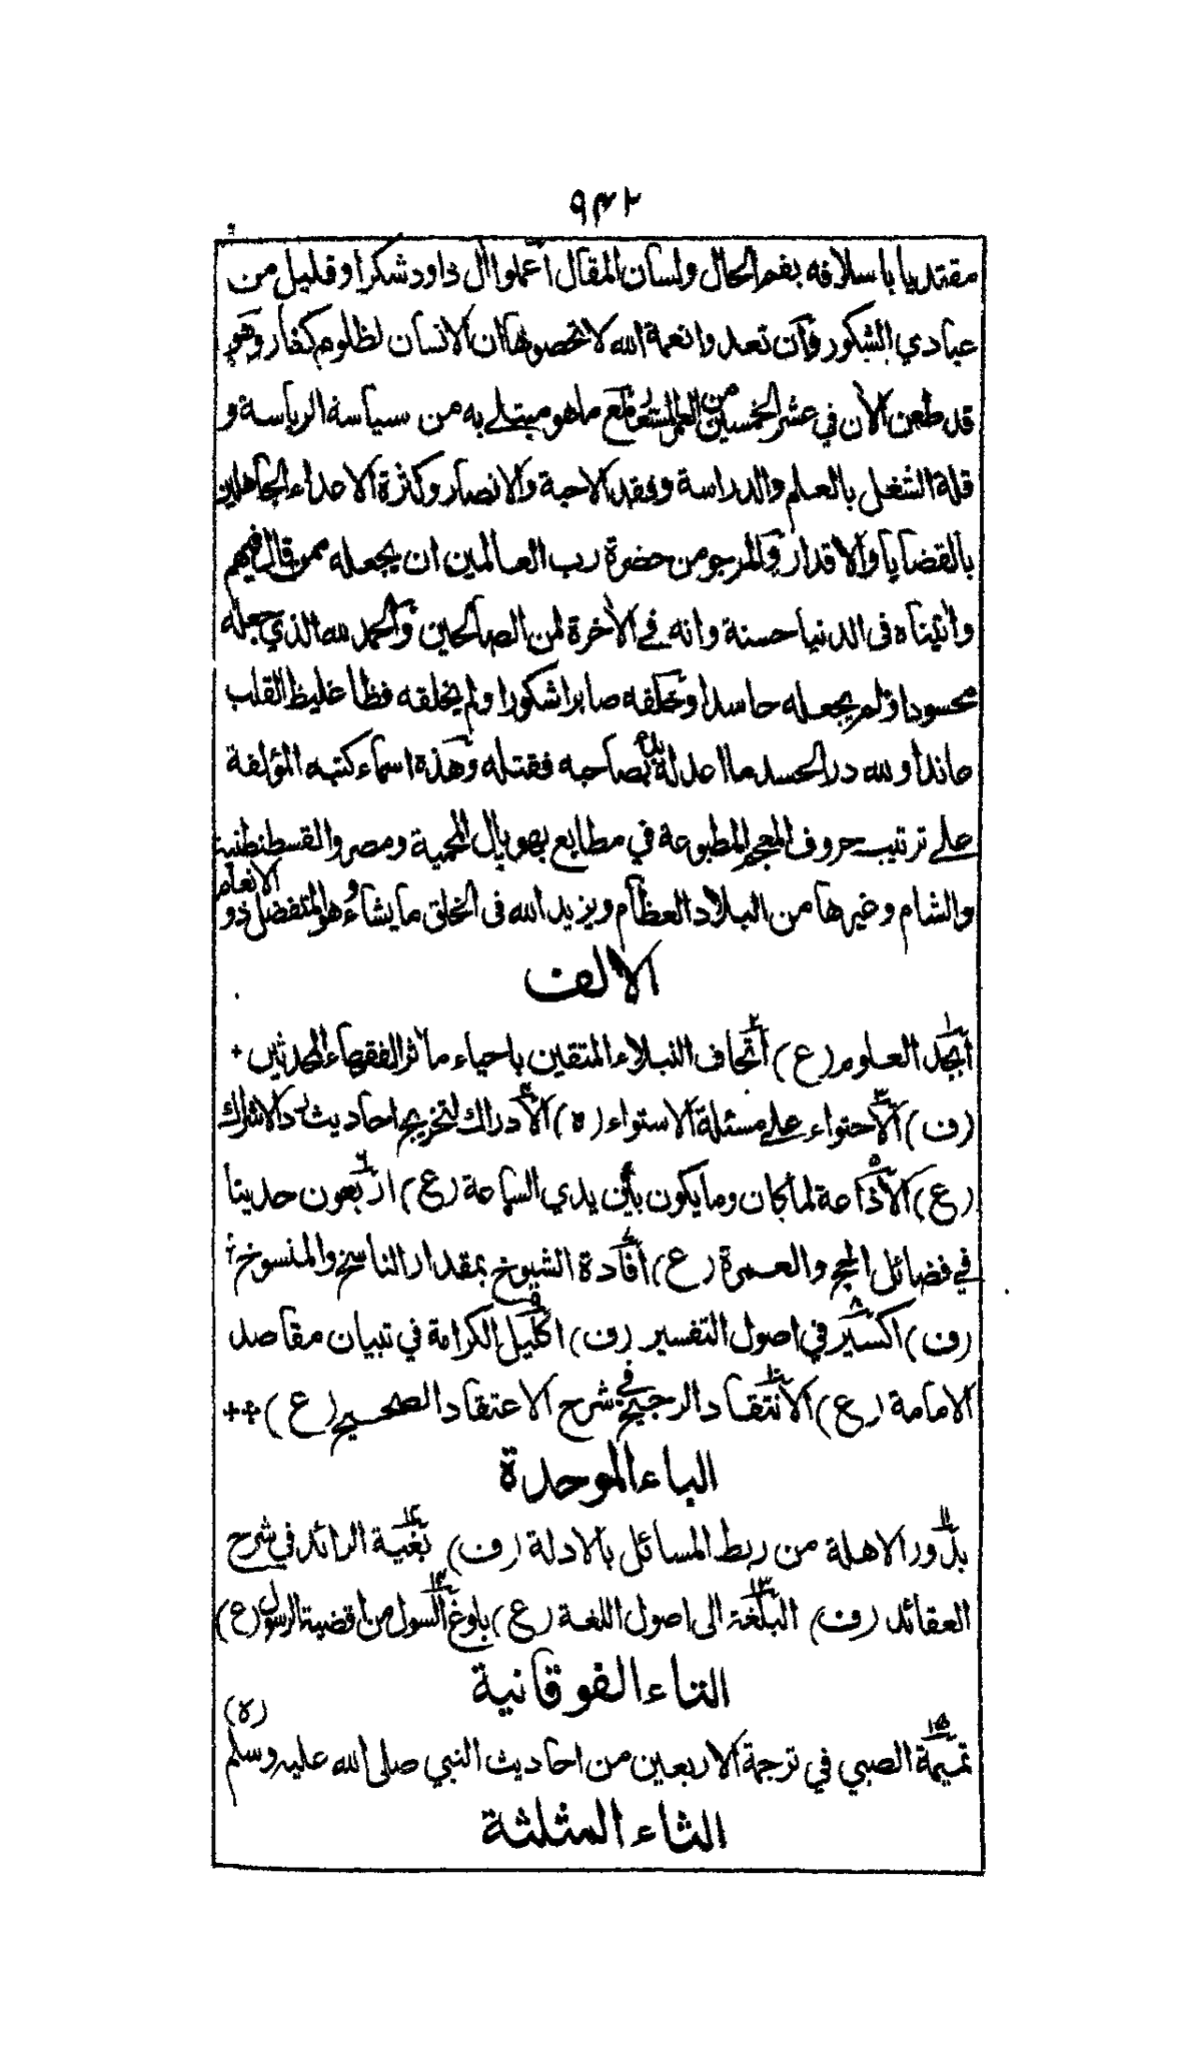 ٩٤٢
مقتديا باسلافه بفم الحال ولسان المقال اعملوا ال داود شكرا وقليل من
عبادي الشكور وان تعدوا نعمة الله لا تحصوها ان الانسان لظلوم كفار وهو
قد طعن الان في عشر الخمسين من العمر المستعار مع ما هو مبتلى به من سياسة الرياسة و
قلة الشغل بالعلم والدراسة وفقد الاحبة والانصار وكثرة الاعداء الجاهلين
بالقضايا والاقدار والمرجو من حضرة رب العالمين ان يجعله ممن قال فيهم
واتيناه في الدنيا حسنة وانه في الاخرة لمن الصالحين والحمد لله الذي جعله
محسودا ولم يجعله حاسدا وخلقه صابرا شكورا ولم يخلقه فظا غليظ القلب
عاندا ولله در الحسد ما اعدله بدء بصاحبه فقتله وهذه اسماء كتبه المؤلفة
على ترتيب حروف المعجم المطبوعة في مطابع بهوپال المحمية ومصر والقسطنطنية
والشام وغيرها من البلاد العظام ويزيد الله في الخلق ما يشاء وهو المتفضل ذو الانعام
الالف
١ ابجد العلوم (ع) ٢ اتحاف النبلاء المتقين باحياء مآثر الفقهاء المحدثين
(ف) ٣ الاحتواء على مسئلة الاستواء (ه) ٤ الادراك لتخريج احاديث رد الاشراك
(ع) ٥ الاذاعة لما كان وما يكون بين يدي الساعة (ع) ٦ اربعون حديثا
في فضائل الحج والعمرة (ع) ٧ افادة الشيوخ بمقدار الناسخ والمنسوخ
(ف) ٨ اكسير في اصول التفسير (ف) ٩ اكليل الكرامة في تبيان مقاصد
الامامة (ع) ١٠ الانتقاد الرجيح في شرح الاعتقاد الصحيح (ع)
الباء الموحدة
١١ بدور الاهلة من ربط المسائل بالادلة (ف) ١٢ بغية الرائد في شرح
العقائد (ف) ١٣ البلغة الى اصول اللغة (ع) ١٤ بلوغ السول من اقضية الرسول (ع)
التاء الفوقانية
١٥ تميمة الصبي في ترجمة الاربعين من احاديث النبي صلى الله عليه وسلم (ه)
الثاء المثلثة